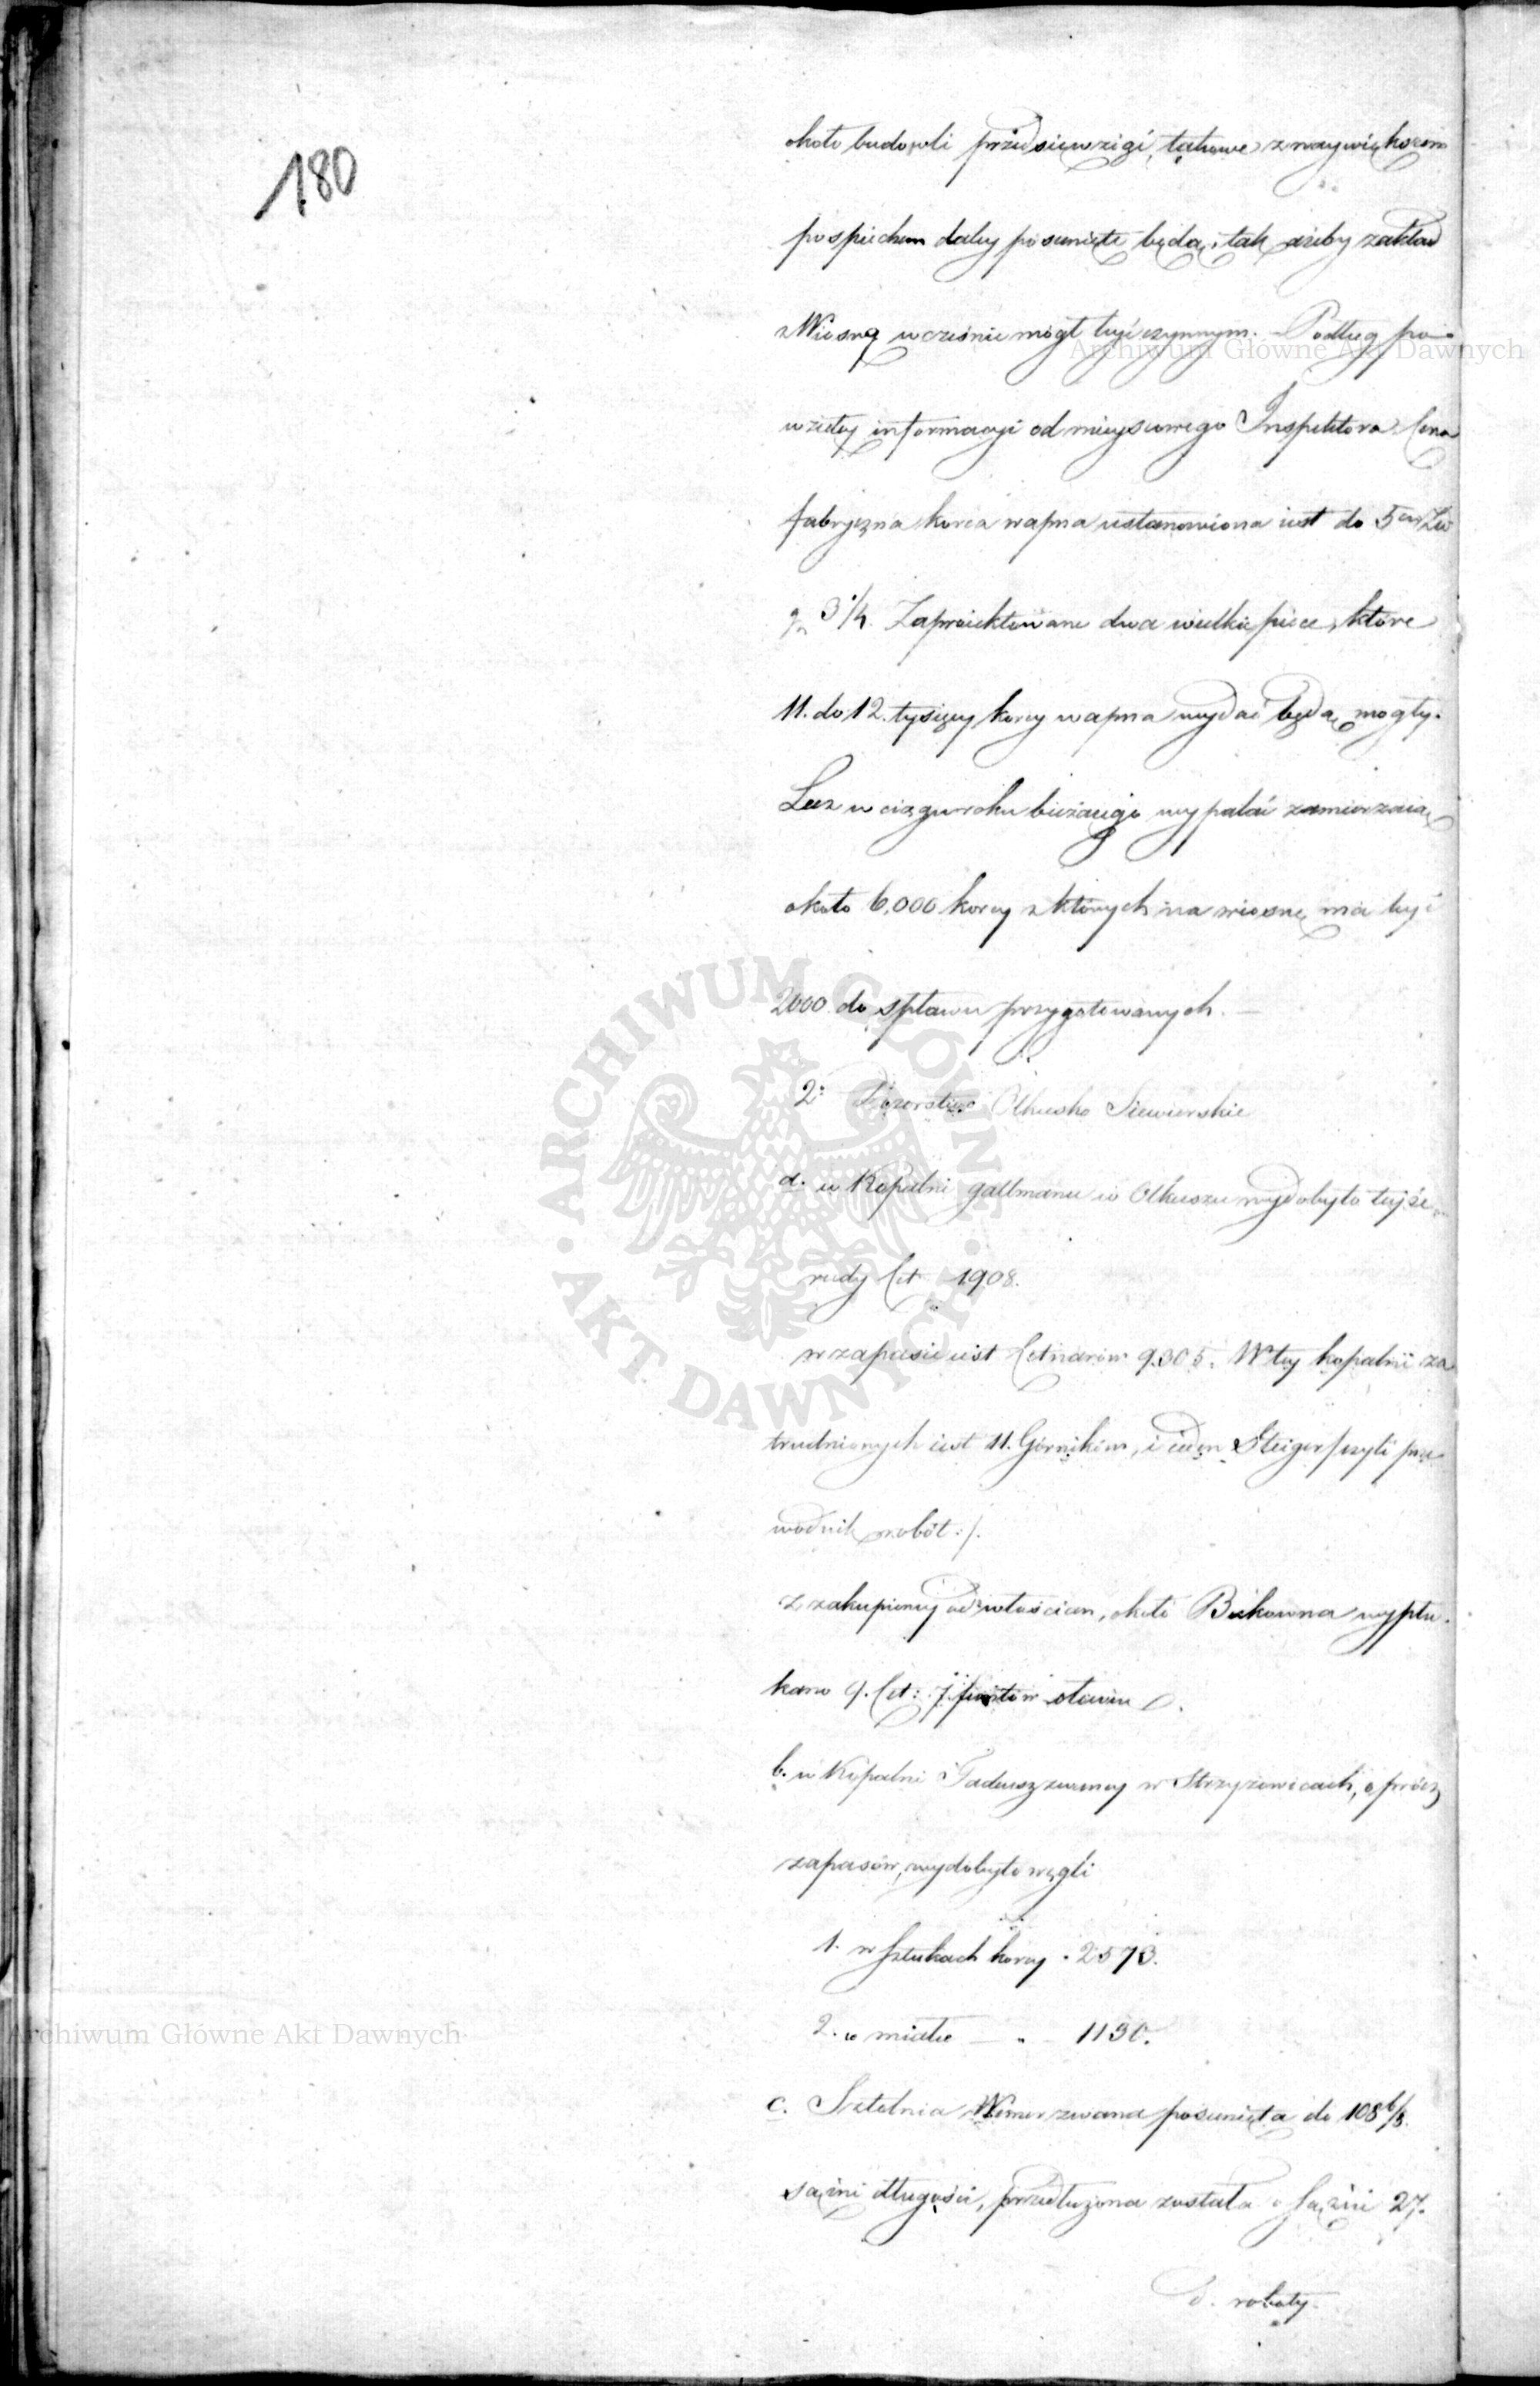 180
około budowli przedsięwzięć, takowe z naywiększem
pospiechem daley posunięte będą, i tak ażeby zakład
z Wiosną wcześnie mógł być czynnym. – Podług po-
wziętey informacyi od mieyscowego Inspektora Cena
fabryczna korca wapna ustanowiona iest do 5
gr 3 1/4. Zaproiektowane dwa wielkie piece, które
11. do 12. tysięcy korcy wapna wydać będą mogły.
Lecz w ciągu roku bieżącego wypalać zamierzaią
około 6,000 korcy z których na wiosnę ma być
2000 do spławu przygotowanych. –
2: Dozorstwo Olkusko Siewierskie
a. w Kopalni gallmanu w Olkuszu wydobyto teyże
rudy Cet 1908.
w zapasie iest Cetnarów 9305. W tey kopalni za
trudnionych iest 11. Górników, i ieden Steiger /czyli prze
wodnik robót:/.
Z zakupioney od włościan, około Bukowna wypłu-
kano 9. Cet: 7 funtów ołowiu.
b. w Kopalni Tadeusz zwaney w Strzyżowicach, oprócz
zapasów, wydobyto węgli
1. w sztukach korcy . 2573.
2. w miale – „ – 1130.
c. Sztolnia zwana posunięta do 108 6/8
sążni długości, przedłużona została o sążni 27.
d. roboty
Archiwum Główne Akt Dawnych
ARCHIWUM GŁÓWNE AKT DAWNYCH
Archiwum Główne Akt Dawnych